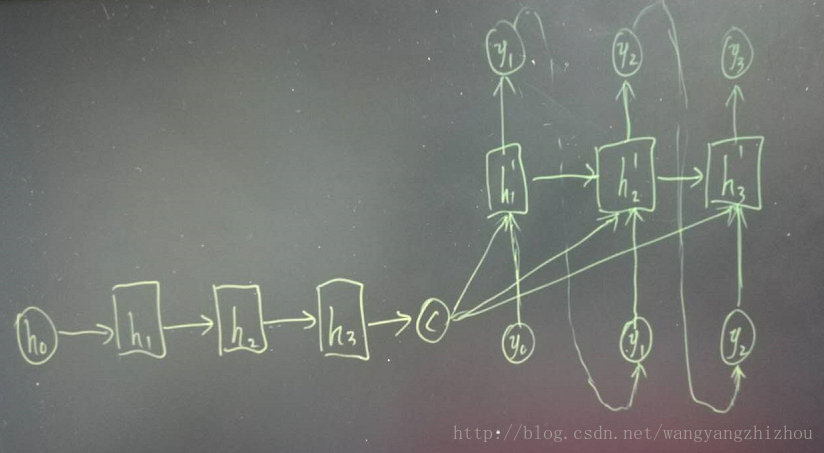 y₁ y₂ y₃
h₁' h₂' h₃'
h₀ h₁ h₂ h₃ c y₀ y₁ y₂
http://blog.csdn.net/wangyangzhizhou